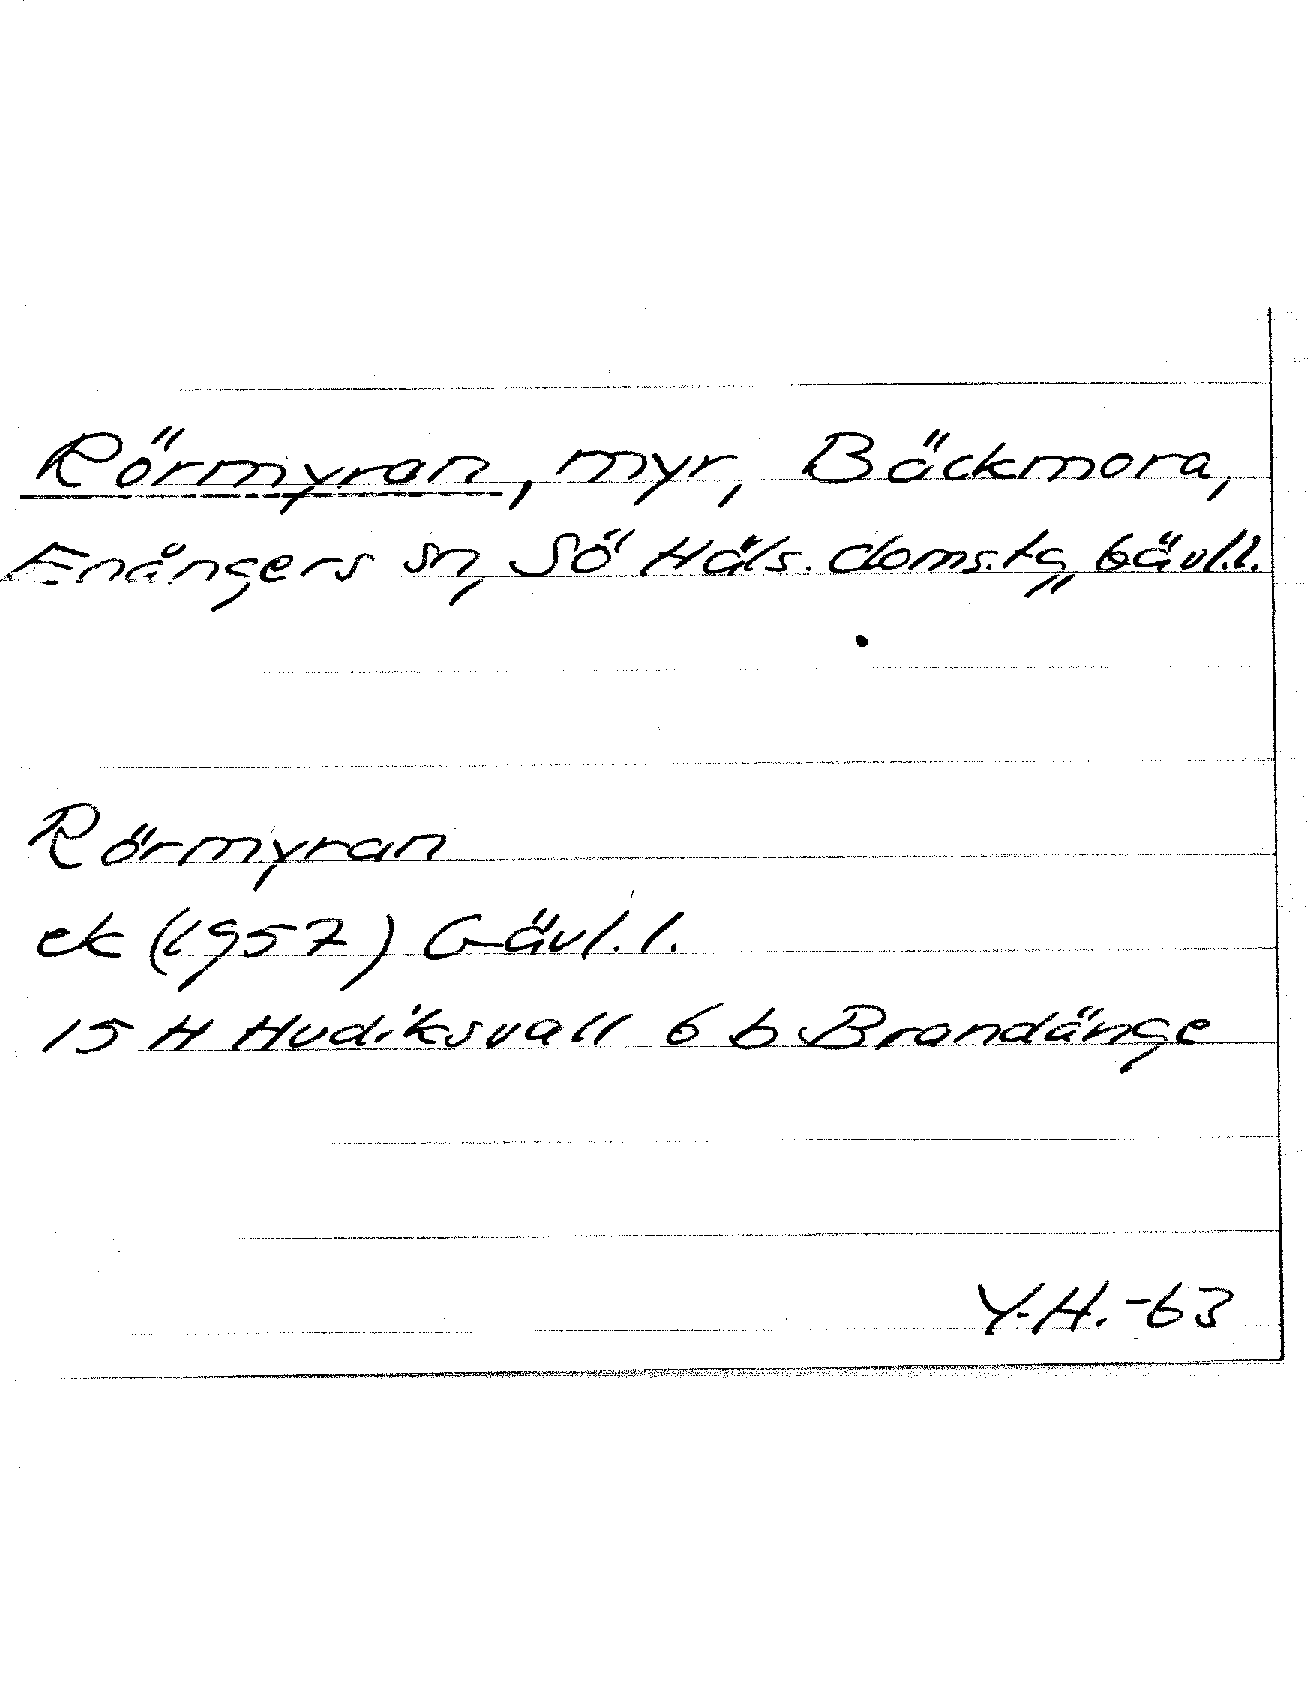 Rörmyran, myr, Bäckmora,
Enångers sn, Sö Häls. doms.tg, Gävl.l.
Rörmyran
ek (1957) Gävl.l.
15 H Hudiksvall 6 b Brandänge
Y.H.-63